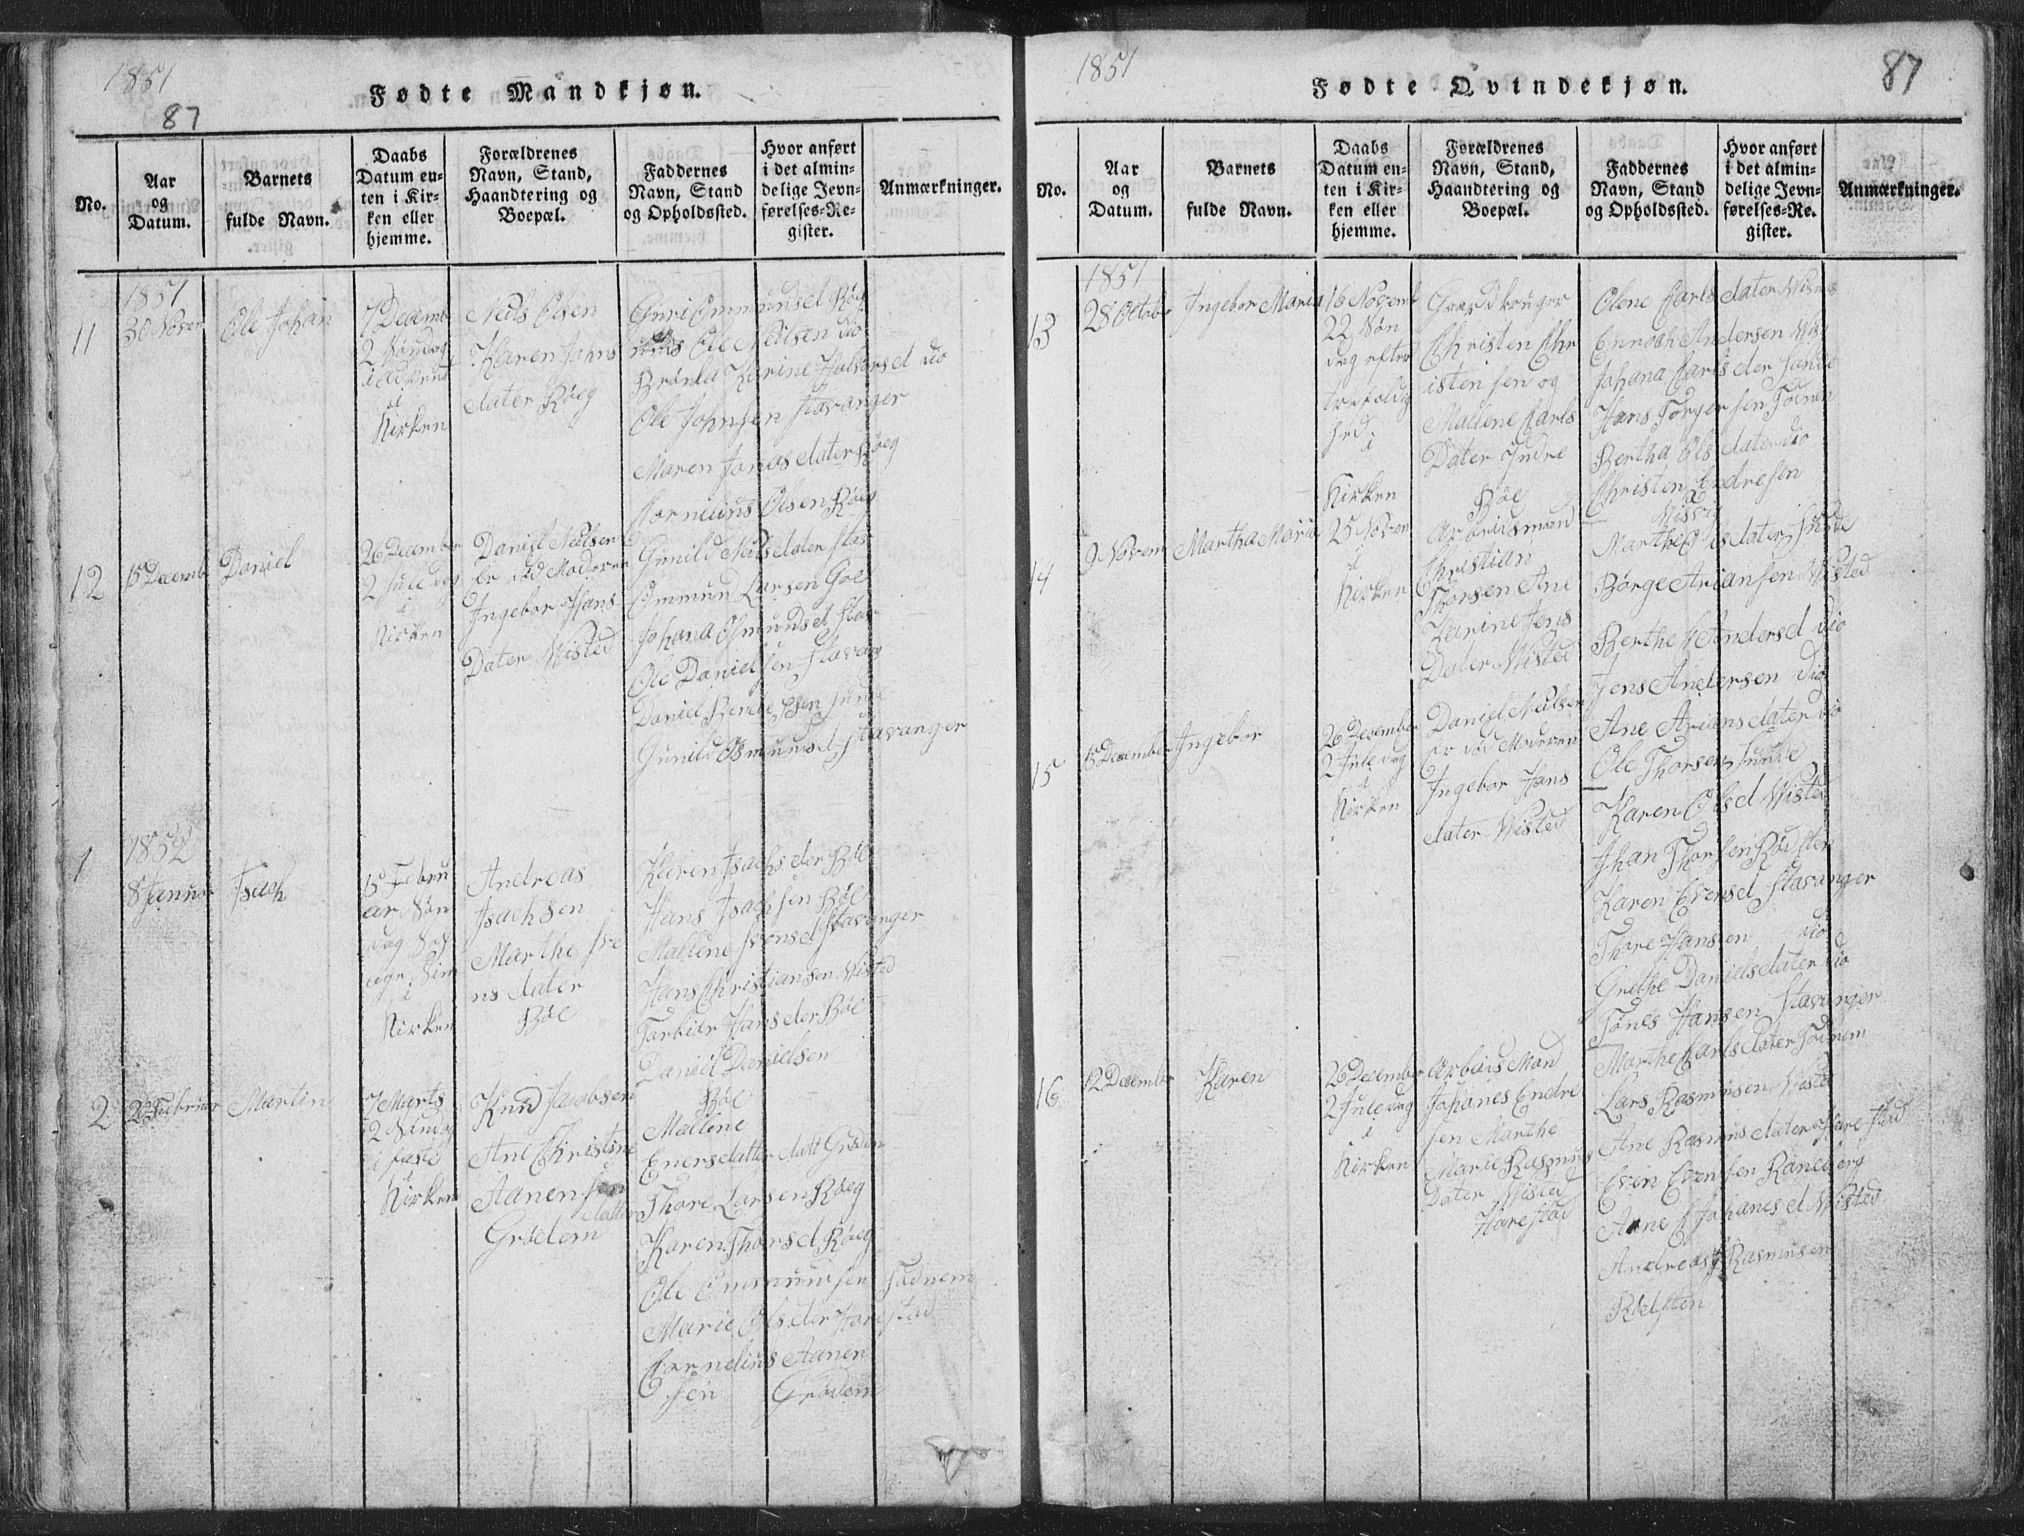 1851
87
Fødte Mandkjøn.
No.
Aar
og
Datum.
Barnets
fulde Navn.
Daabs
Datum en-
ten i Kir-
ken eller
hjemme.
Forældrenes
Navn, Stand,
Haandtering og
Boepæl.
Faddernes
Navn, Stand
og Opholdssted.
Hvor anført
i det almin-
delige Jevn-
førelses-Re-
gister.
Anmærkninger.
11
1851
30 Nover
Ole Johan
7 Decemb
2 Søndag
i advent
i
Kirken
Neils Olsen
Karen Johns
dater Røeg
Guri Ommundsd Røeg
Ole Neilsen dio
Karine Halvorsd dio
Ole Johnsen Stavanger
Maren Jonasdater Røeg
Corneluus Olsen Røeg
12
15 Decemb
Daniel
26 December
2 Jule dag
i
Kirken
Daniel Neilsen
Er død Moderen
Ingebor Hans
Dater Wisted
Gunild Neilsdater Stav
Ommund Larsen Goe
Johana Osmundsd Stav
Ole Danielsen Stavang
Daniel
Gunild Osmundsd Stavanger
1
1852
8 Januar
Isach
15 Febru
ar Søn
dag
i
Kirken
Andreas
Isachsen
Marthe Sve
ns dater
Bøe
Karen Isachs der Bøe
Hans Isachsen Bøe
Mallene Svensd Stavanger
Hans Christiansen Wisted
Torbier Hans der Bøe
Daniel Danielsen
Bøe
2
22 Februar
Martin
7 Marts
2 Søndag
i faste
Kirken
Knud Jacobsen
Ane Christine
Aanensen
datter
Grødem
Mallene
Enersdatter datt Grødem
Thore Larsen Røeg
Karen Thorsd Røeg
Ole Ommundsen Todnem
Marie Ols der Harestad
Cornelius Aanen
sen Grødem
1851
87
Fødte Qvindekjøn.
No.
Aar
og
Datum.
Barnets
fulde Navn.
Daabs
Datum en-
ten i Kir-
ken eller
hjemme.
Forældrenes
Navn, Stand,
Haandtering og
Boepæl.
Faddernes
Navn, Stand
og Opholdssted.
Hvor anført
i det almin-
delige Jevn-
førelses-Re-
gister.
Anmærkninger.
13
1851
28 Octobr
Ingebor Maria
16 Novemb
22 Søn
dag efter
trefolig
hed
i
Kirken
Gaardbruger
Christen Chr
istensen og
Mallene Carls
Dater Indre
Bøe
Olene Carls dater
Ennoch Andersen
Johana Carls der Sande
Hans Torgersen Todnem
Bertha Ols dater dio
Christen Endresen
14
9 Novem
Martha Maria
25 Novem
i
Kirken
Arbeidsmand
Christian
Thorsen Ane
Karine Jens
Dater Wisted
Marthe Olsdater Sunde
Børge Ariansen Wisted
Berthe Andersd dio
Jens Andersen dio
Ane Ariansdater dio
Ole Thorsen Sunde
15
15 December
Ingebor
26 December
2 Juledag
i
Kirken
Daniel Neilsen
Er død Moderen
Ingebor Hans
dater Wisted
Karen Olsd Wisted
Johan Thorsen Rødsten
Karen Evensd Stavanger
Thore Hansen dio
Grethe Danielsdater dio
Tønes Hansen Stavanger
16
12 December
Karen
26 December
2 Juledag
i
Kirken
Arbeids Man
Johanes Endre
sen Marthe
Marie Rasmus
Dater Wisted
Harestad
Marthe Carlsdater Todnem
Lars Rasmusen Wisted
Ane Rasmusdater Harestad
Even Evensen Raneberg
Ane Johanesd Wisted
Andreas Rasmusen
Rødsten